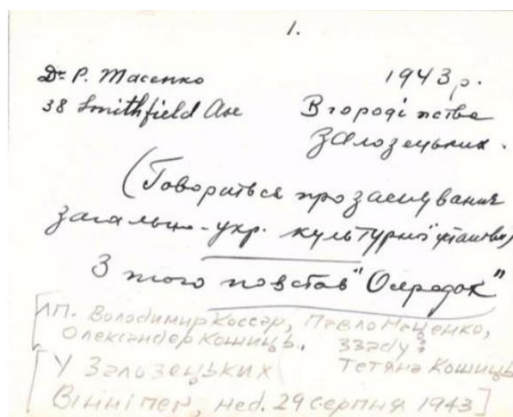 1.
Dr. P. Маценко
1943 р.
38 Smithfield Ave
В городі п-ства
Залозецьких.
(Говориться про заснування
загально-укр. культурної установи)
З того повстав "Осередок"
[пп. Володимир Коссар, Павло Маценко,
Олександер Кошиць. Ззаду:
Тетяна Кошиць
[У Залозецьких
Вінніпег, нед. 29 серпня 1943]